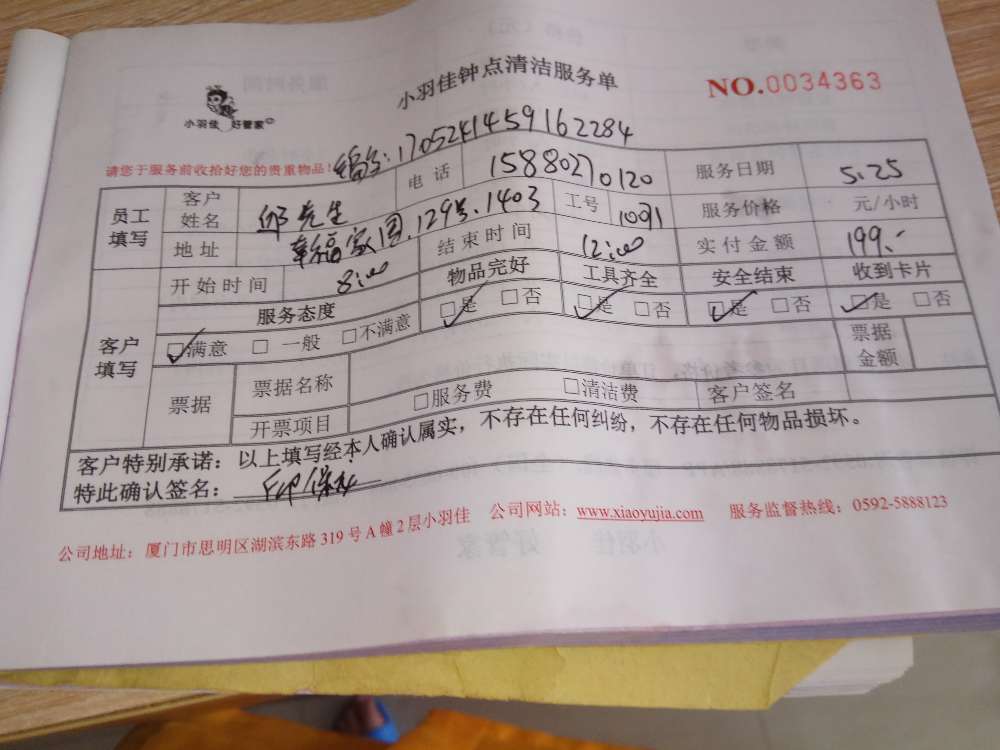 小羽佳钟点清洁服务单
NO.0034363
小羽佳 好管家
请您于服务前收拾好您的贵重物品! 编号:1705241459162284
员工填写 客户姓名 邱先生 电话 15880270120 服务日期 5.25
地址 幸福家园.129号.1403 工号 1091 服务价格 元/小时
开始时间 8:00 结束时间 12:00 实付金额 199.-
客户填写 服务态度 物品完好 工具齐全 安全结束 收到卡片
☑满意 □一般 □不满意 ☑是 □否 ☑是 □否 ☑是 □否 ☑是 □否
票据 票据名称 票据金额
开票项目 □服务费 □清洁费 客户签名
客户特别承诺:以上填写经本人确认属实,不存在任何纠纷,不存在任何物品损坏。
特此确认签名:
公司地址:厦门市思明区湖滨东路319号A幢2层小羽佳 公司网站:www.xiaoyujia.com 服务监督热线:0592-5888123